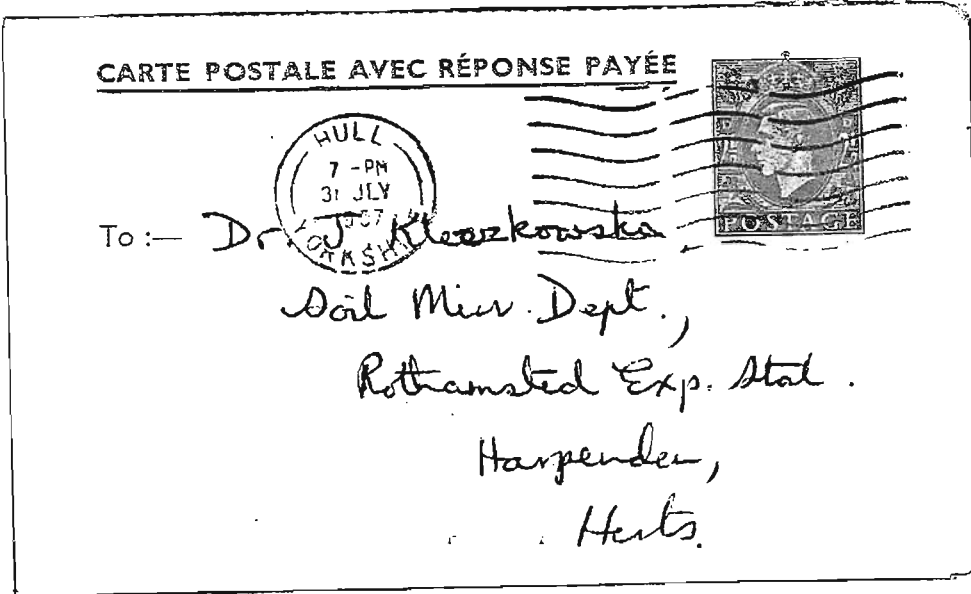 CARTE POSTALE AVEC RÉPONSE PAYÉE
HULL
7 - PM
31 JLY
YORKSHIRE
POSTAGE
To :— Dr. J. Kleczkowska
Soil Micr. Dept.,
Rothamsted Exp. Stat.
Harpenden,
Herts.